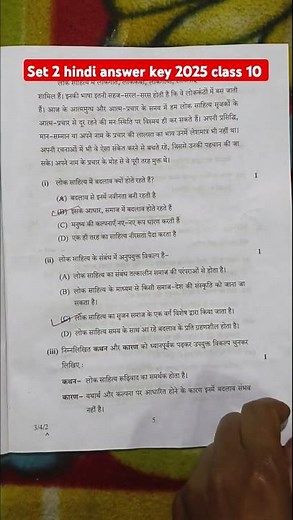 Set 2 hindi answer key 2025 class 10
शामिल हैं। इनकी भाषा इतनी सहज-सरल-सरस होती है कि ये लोककंठों में बस जाती
हैं। आज के आत्ममुग्ध और आत्म-प्रचार के समय में हम लोक साहित्य सृजकों के
आत्म-प्रचार से दूर रहने की मनःस्थिति पर विस्मय ही कर सकते हैं। अपनी प्रसिद्धि,
मान-सम्मान या अपने नाम के प्रचार की लालसा का भाव उनमें लेशमात्र भी नहीं था।
अपनी रचनाओं में भी वे ऐसा संकेत करने से बचते रहे, जिससे उनकी पहचान की जा
सके। अपने नाम के प्रचार के मोह से वे पूरी तरह मुक्त थे।
(i) लोक साहित्य में बदलाव क्यों होते रहते हैं? 1
(A) बदलाव से इनमें नवीनता बनी रहती है
(B) इसके आधार, समाज में बदलाव होते रहते हैं
(C) मनुष्य की कल्पनाएँ नए-नए रूप धारण करती हैं
(D) एक ही तरह का साहित्य नीरसता पैदा करता है
(ii) लोक साहित्य के संबंध में अनुपयुक्त विकल्प है– 1
(A) लोक साहित्य का संबंध तत्कालीन समाज की परंपराओं से होता है।
(B) लोक साहित्य के माध्यम से किसी समाज-देश की संस्कृति को जाना जा
सकता है।
(C) लोक साहित्य का सृजन समाज के एक वर्ग विशेष द्वारा किया जाता है।
(D) लोक साहित्य समय के साथ आ रहे बदलाव के प्रति ग्रहणशील होता है।
(iii) निम्नलिखित कथन और कारण को ध्यानपूर्वक पढ़कर उपयुक्त विकल्प चुनकर
लिखिए। 1
कथन– लोक साहित्य रूढ़िवाद का समर्थक होता है।
कारण– यथार्थ और कल्पना पर आधारित होने के कारण इनमें बदलाव संभव
नहीं है।
3/4/2 5